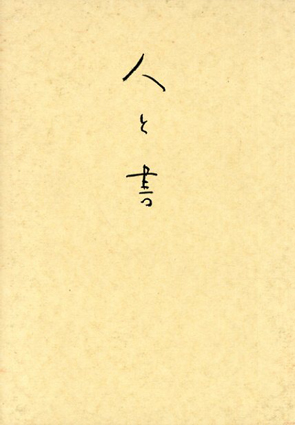 人と書